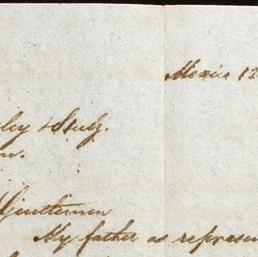 Mexico 12
ley & Stutz.
Gentlemen
My father as represen